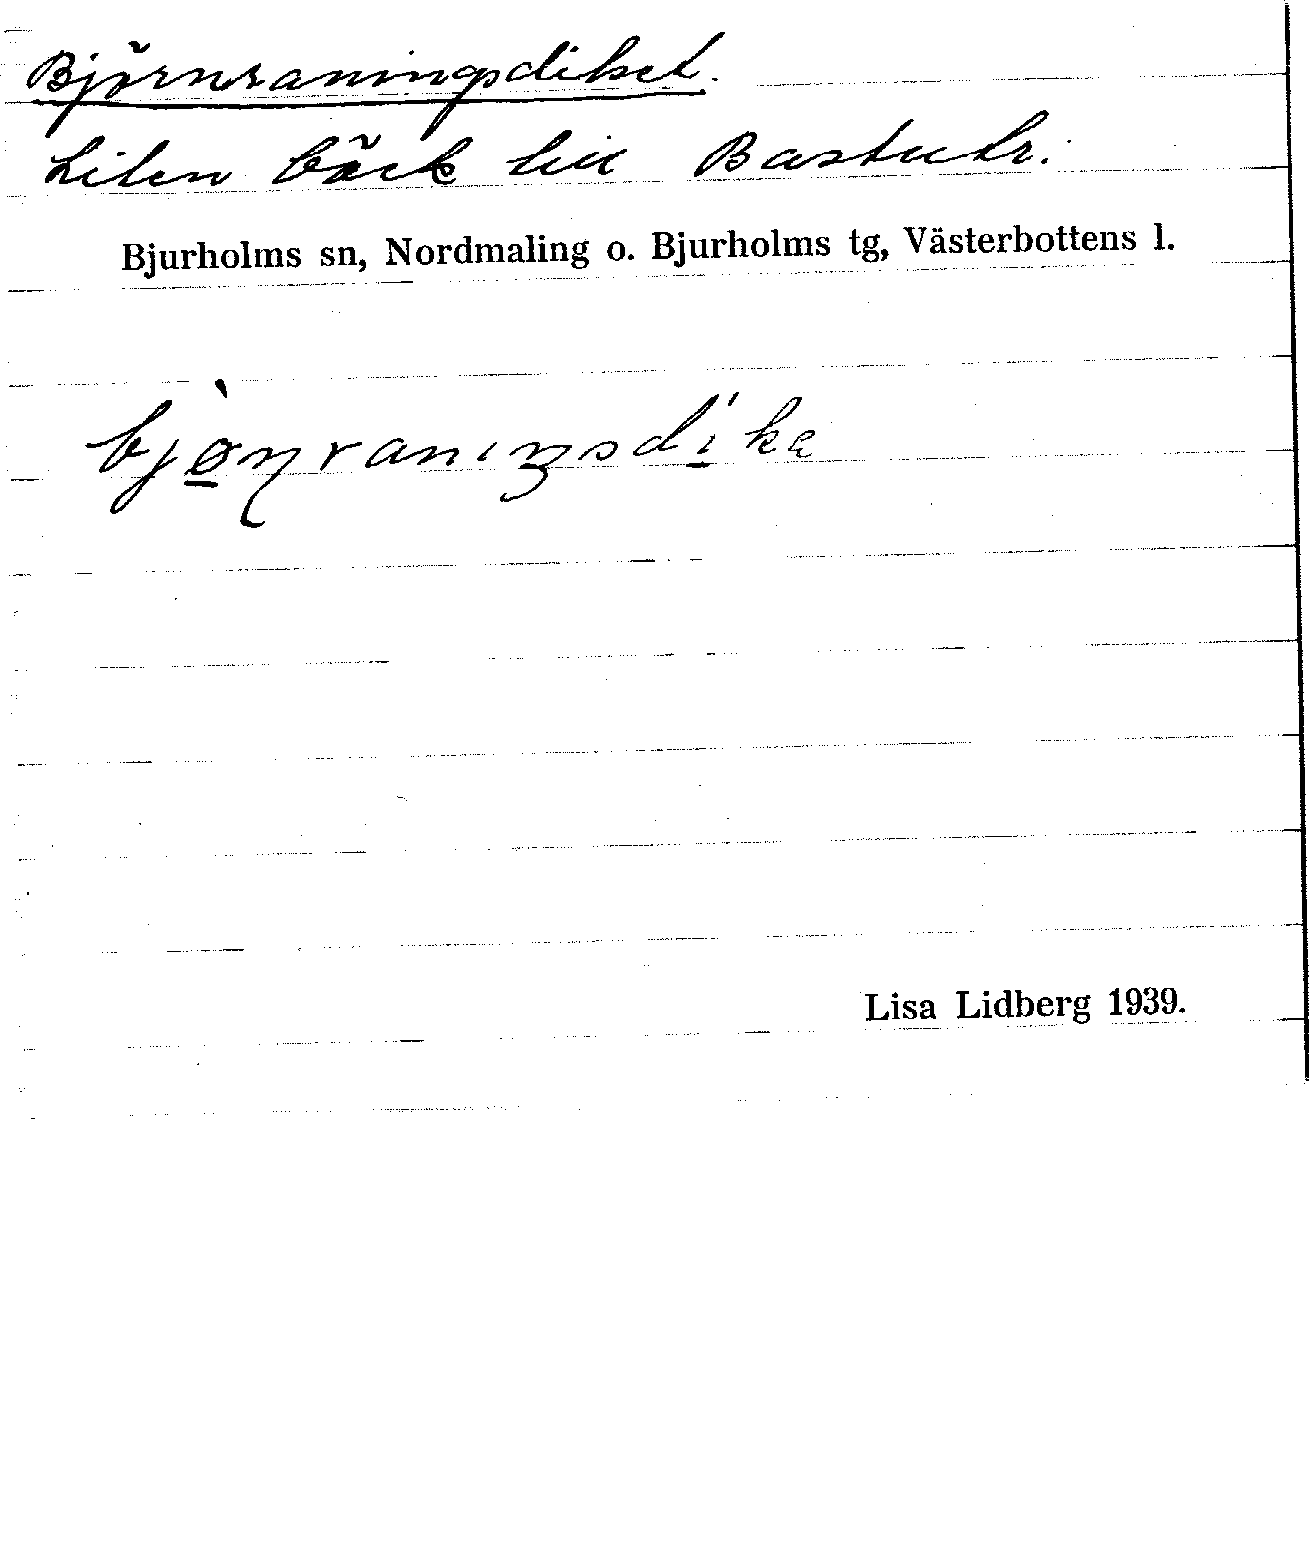 Björnraningsdiket.
Liten bäck till Bastutr.
Bjurholms sn, Nordmaling o. Bjurholms tg, Västerbottens l.
bjø̲̀ɳranıŋsdí̲ka
Lisa Lidberg 1939.